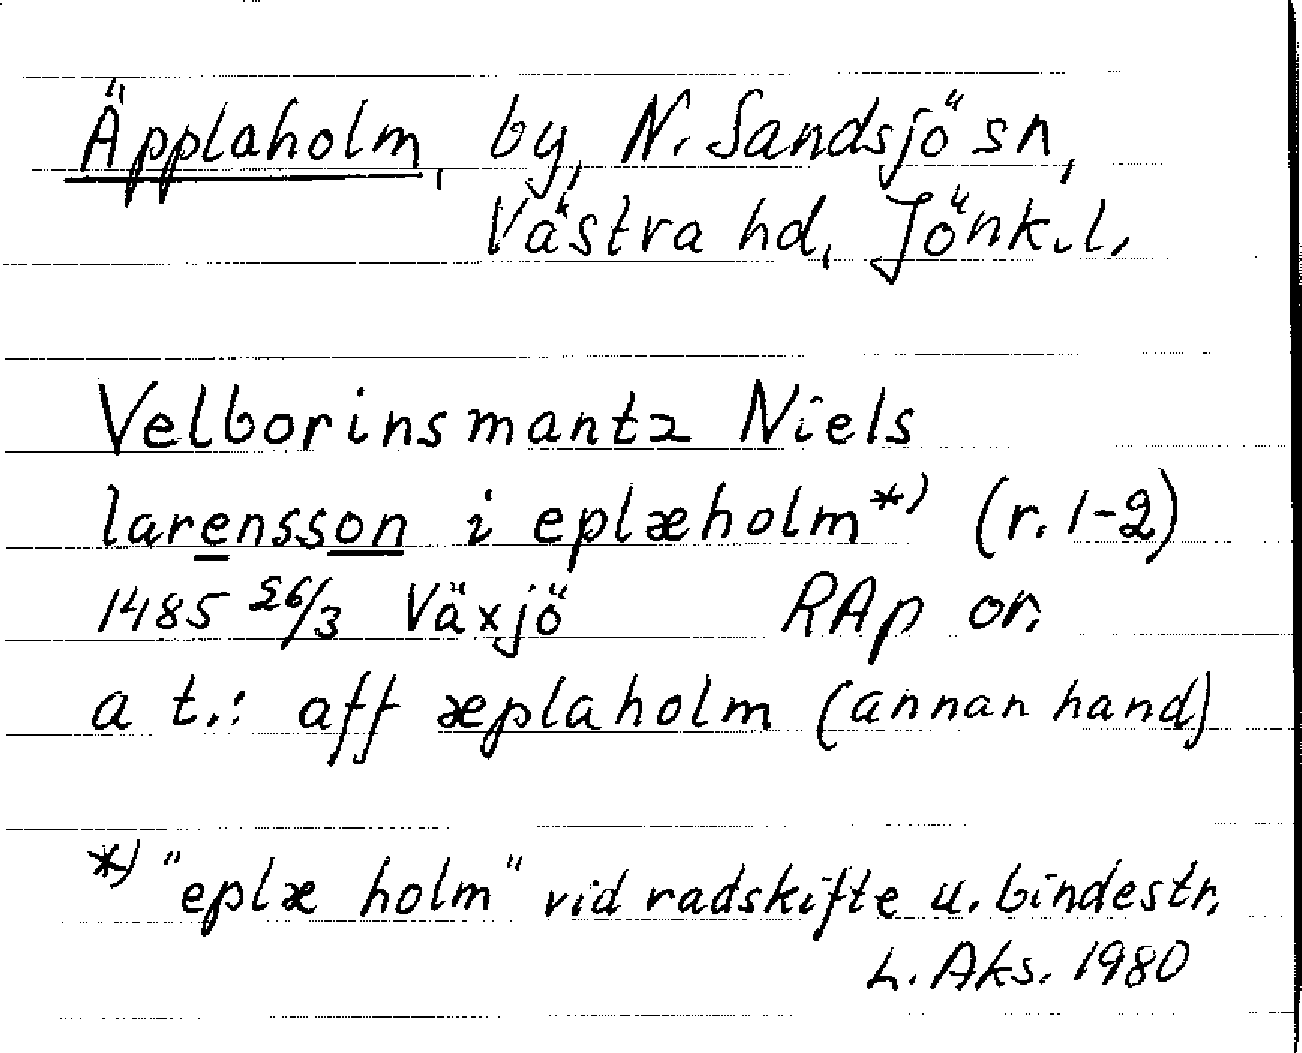 Äpplaholm, by, N. Sandsjö sn,
Västra hd, Jönk. l.
Velborinsmantz Niels
larensson i eplæholm*) (r. 1-2)
1485 26/3 Växjö RAp or.
a t.: aff æplaholm (annan hand)
*) "eplæ holm" vid radskifte u. bindestr.
L. Aks. 1980